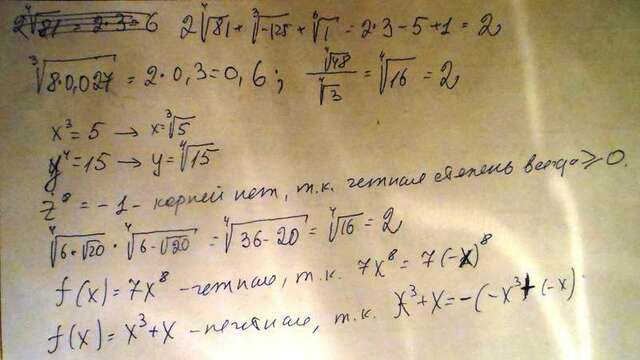 2∜81 = 2·3 = 6 2∜81 + ∛-125 + ⁶√1 = 2·3 - 5 + 1 = 2
∛8·0,027 = 2·0,3 = 0,6; ∜48/∜3 = ∜16 = 2
x³ = 5 → x = ∛5
y⁴ = 15 → y = ∜15
z⁸ = -1 - корней нет, т.к. четная степень всегда ≥ 0.
∜6+√20 · ∜6-√20 = ∜36-20 = ∜16 = 2
f(x) = 7x⁸ - четная, т.к. 7x⁸ = 7(-x)⁸
f(x) = x³+x - нечетная, т.к. x³+x = -(-x³+(-x)